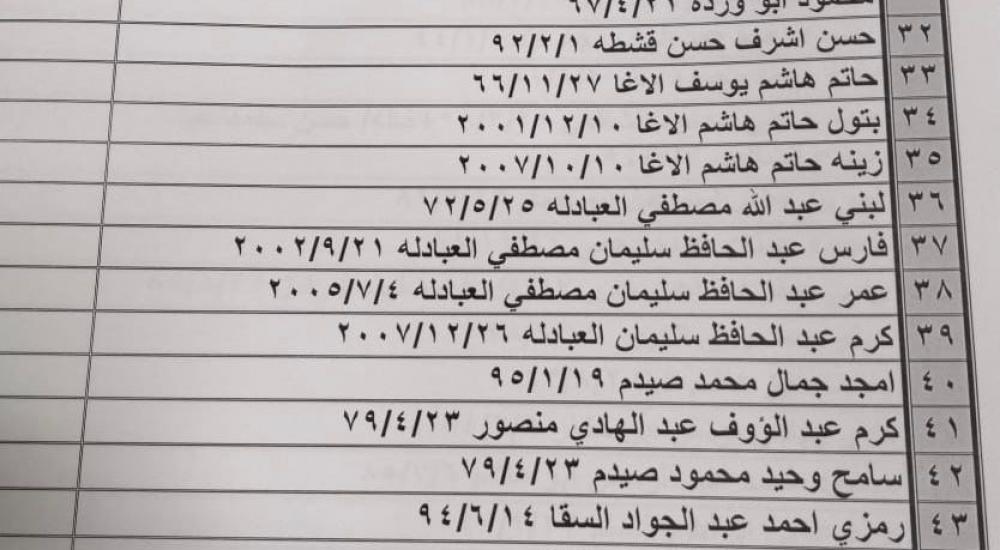 محمود ابو وردة ٦٧/٤/٢١
٣٢ حسن اشرف حسن قشطه ٩٢/٢/١
٣٣ حاتم هاشم يوسف الاغا ٦٦/١١/٢٧
٣٤ بتول حاتم هاشم الاغا ٢٠٠١/١٢/١٠
٣٥ زينه حاتم هاشم الاغا ٢٠٠٧/١٠/١٠
٣٦ لبني عبد الله مصطفي العبادله ٧٢/٥/٢٥
٣٧ فارس عبد الحافظ سليمان مصطفي العبادله ٢٠٠٢/٩/٢١
٣٨ عمر عبد الحافظ سليمان مصطفي العبادله ٢٠٠٥/٧/٤
٣٩ كرم عبد الحافظ سليمان العبادله ٢٠٠٧/١٢/٢٦
٤٠ امجد جمال محمد صيدم ٩٥/١/١٩
٤١ كرم عبد الرؤوف عبد الهادي منصور ٧٩/٤/٢٣
٤٢ سامح وحيد محمود صيدم ٧٩/٤/٢٣
٤٣ رمزي احمد عبد الجواد السقا ٩٤/٦/١٤